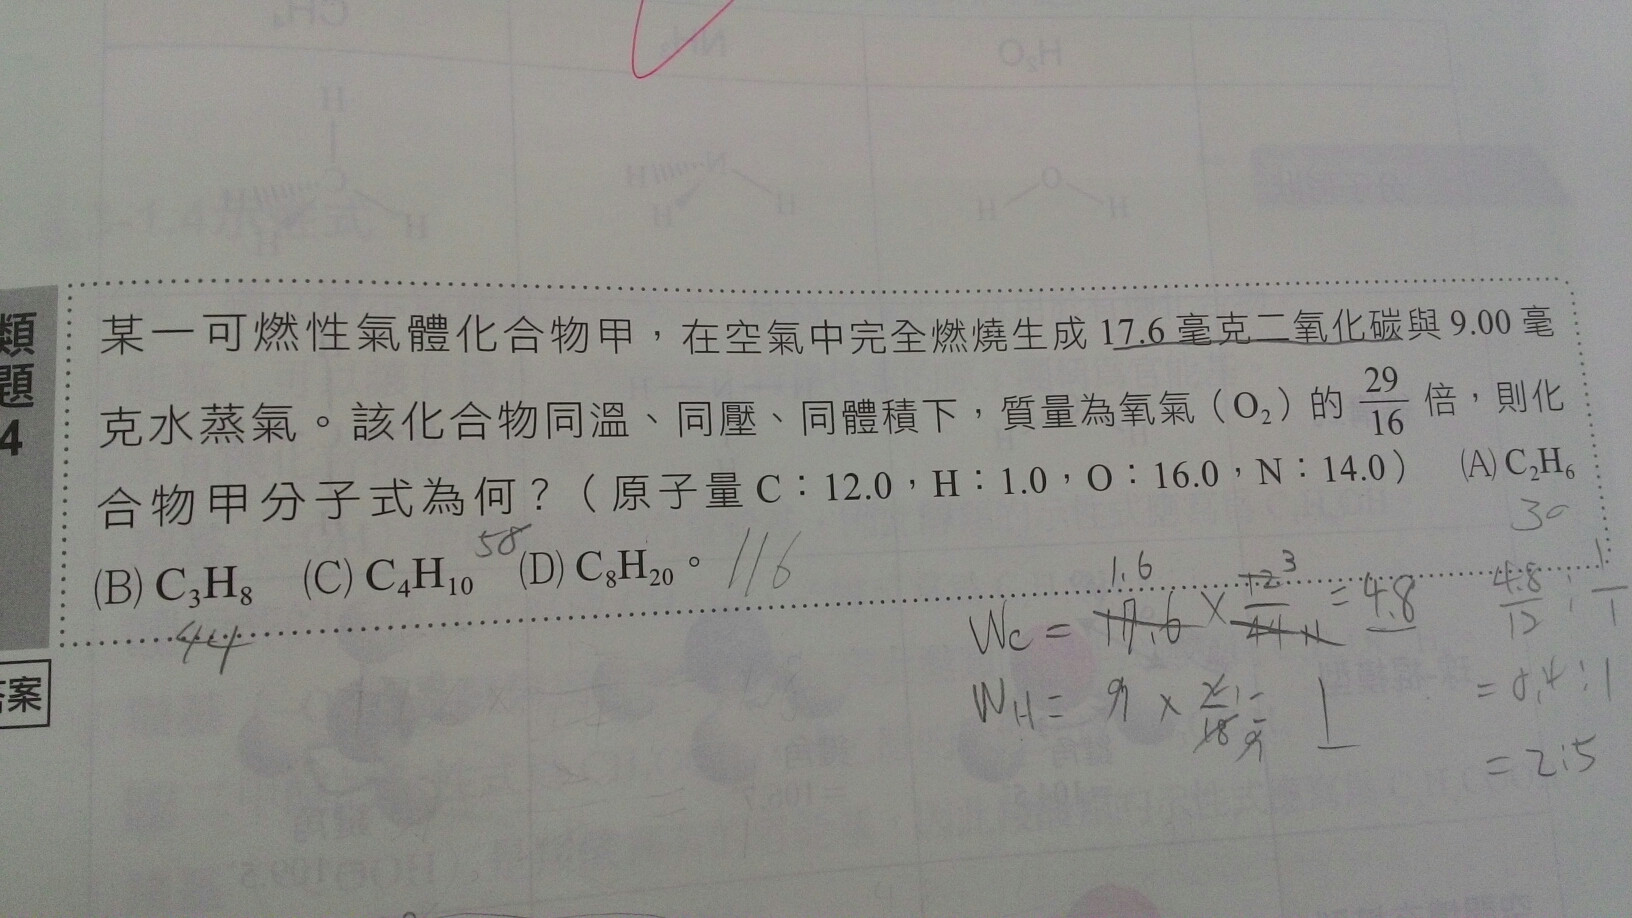 CH₄
NH₃
H₂O
類題4
某一可燃性氣體化合物甲，在空氣中完全燃燒生成 17.6 毫克二氧化碳與 9.00 毫
克水蒸氣。該化合物同溫、同壓、同體積下，質量為氧氣（O₂）的 29/16 倍，則化
合物甲分子式為何？（原子量 C：12.0，H：1.0，O：16.0，N：14.0） (A) C₂H₆
30
(B) C₃H₈ (C) C₄H₁₀ 58 (D) C₈H₂₀。 116
44
答案
1.6 3
W_C = 17.6 × 12/44 11 = 4.8
W_H = 9 × 2/18 1/9 = 1
4.8/12 : 1/1
= 0.4 : 1
= 2:5